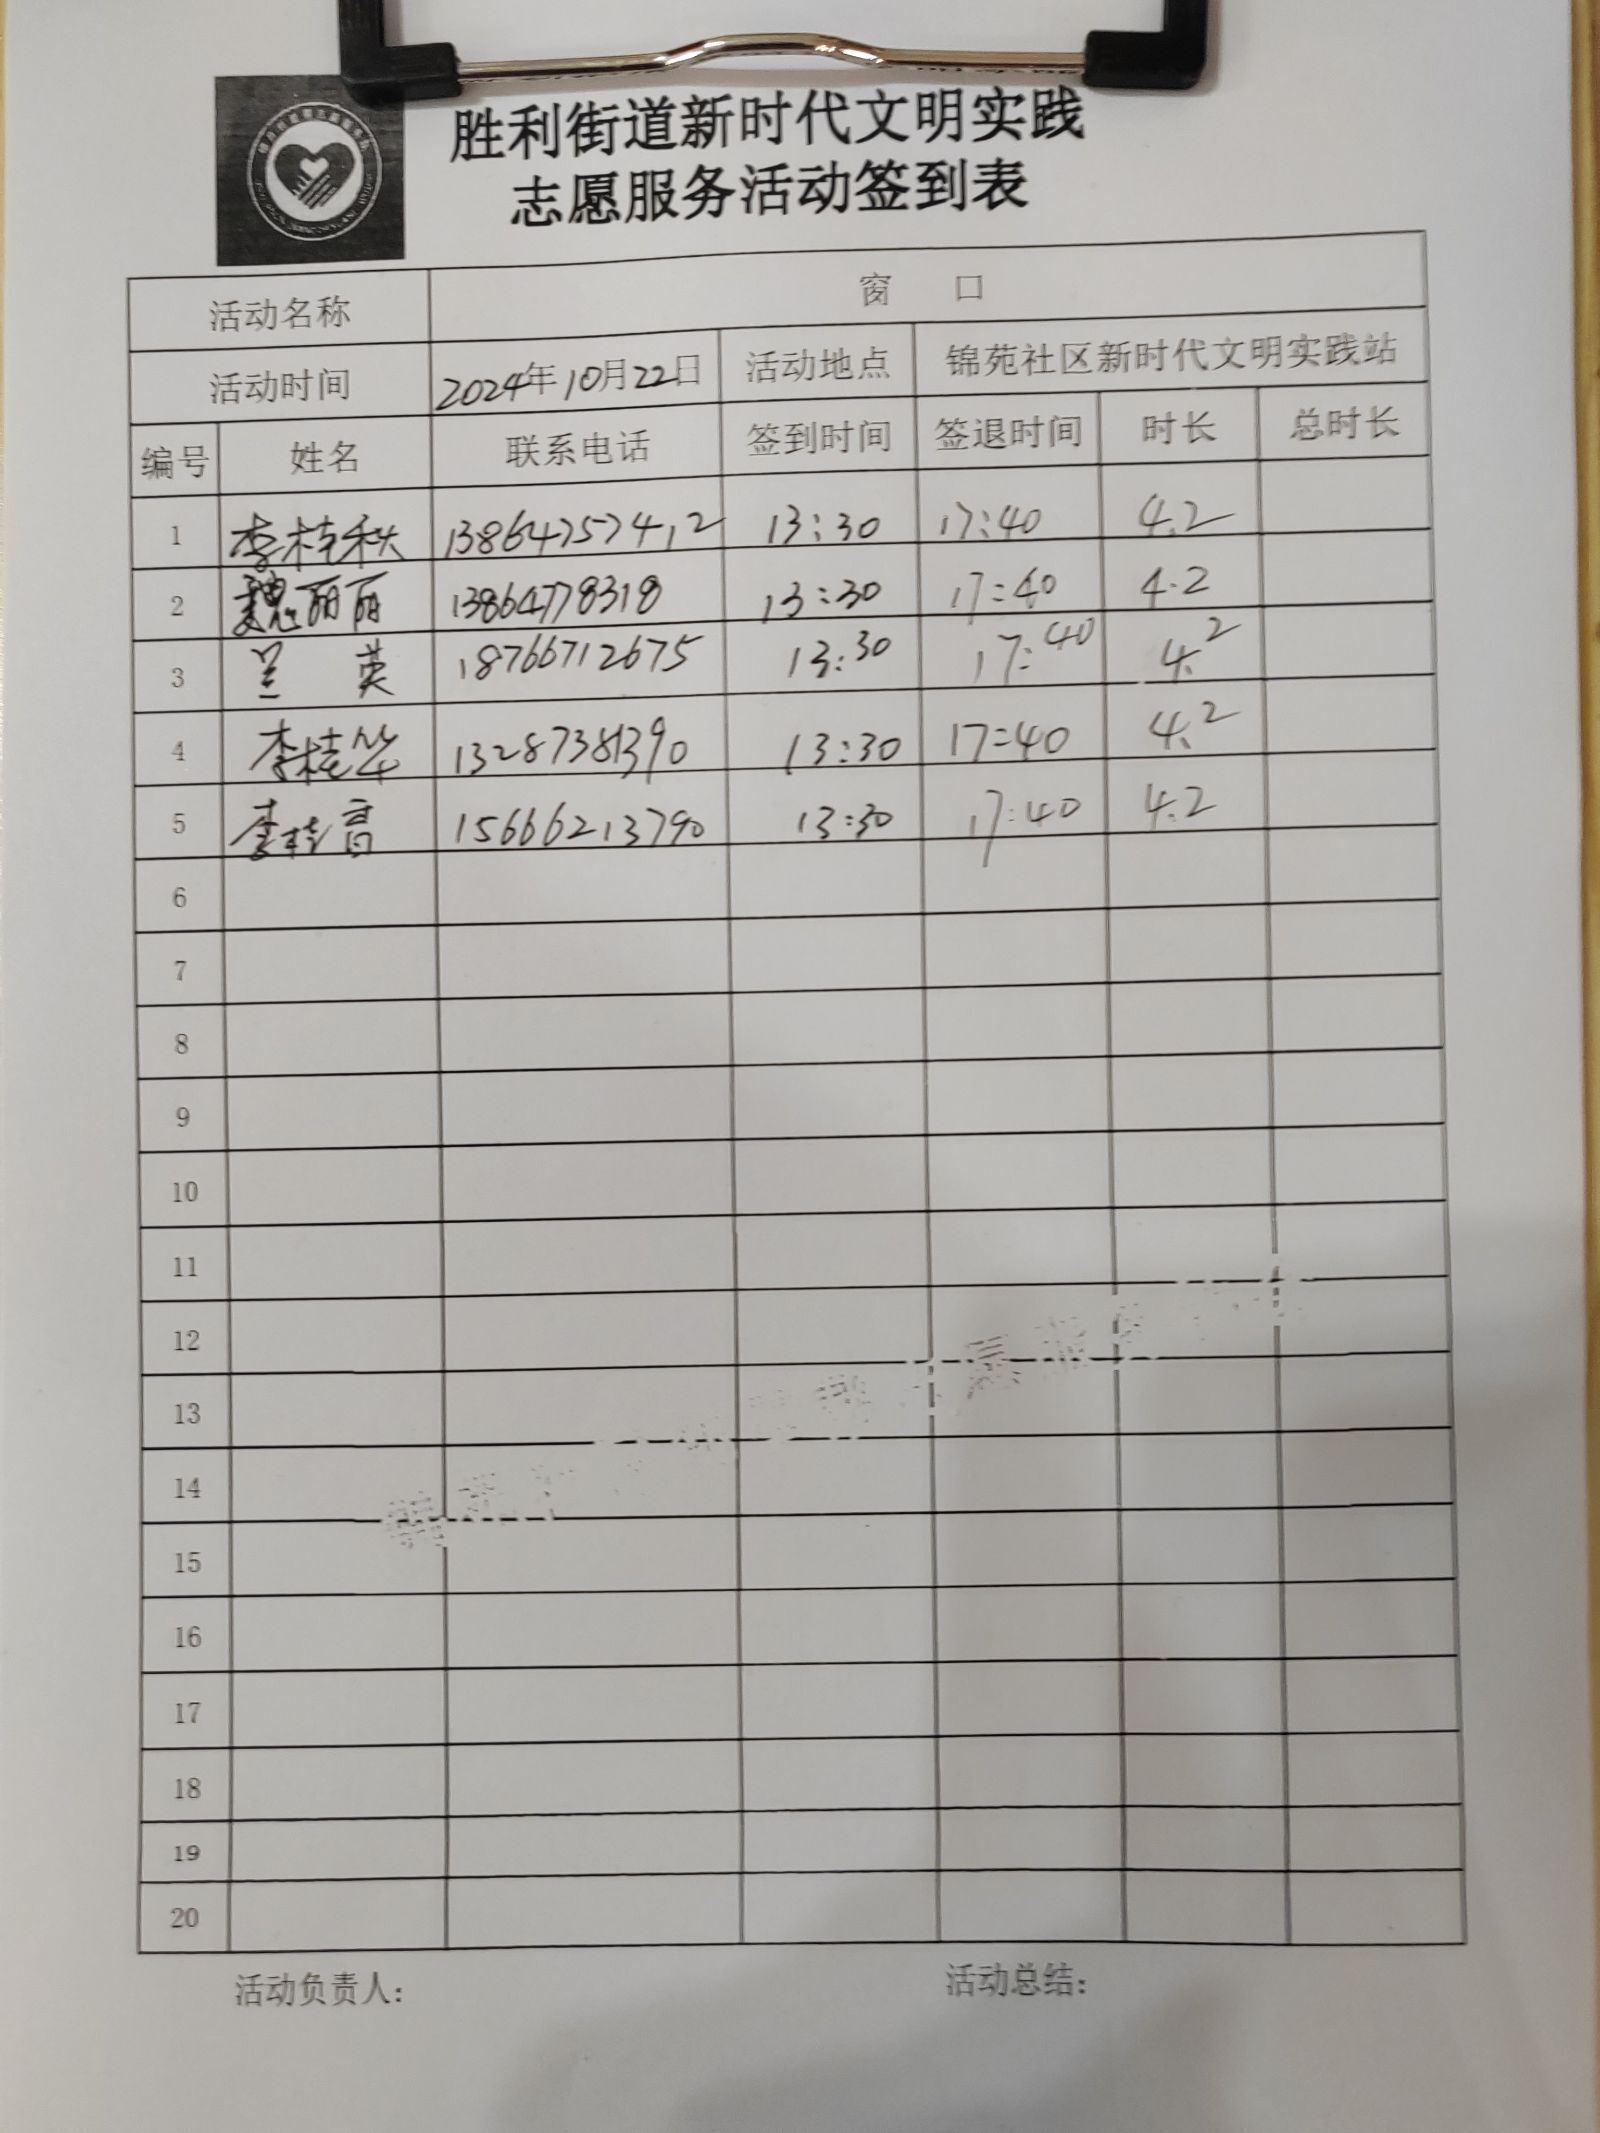 胜利街道新时代文明实践
志愿服务活动签到表
活动名称 窗 口
活动时间 2024年10月22日 活动地点 锦苑社区新时代文明实践站
编号 姓名 联系电话 签到时间 签退时间 时长 总时长
1 李桂秋 13864757412 13:30 17:40 4.2
2 魏丽丽 13864778318 13:30 17:40 4.2
3 兰 英 18766712675 13:30 17:40 4.2
4 李桂华 13287381390 13:30 17:40 4.2
5 李桂香 15666213790 13:30 17:40 4.2
6
7
8
9
10
11
12
13
14
15
16
17
18
19
20
活动负责人: 活动总结: